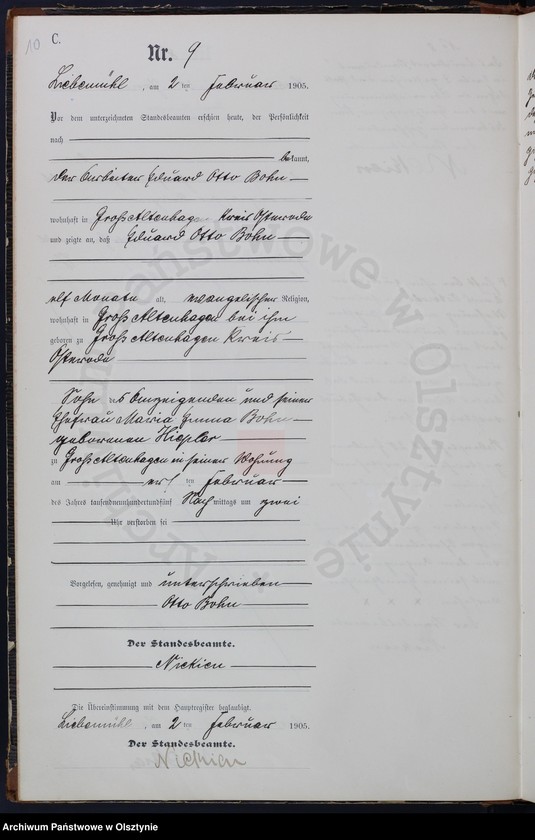 10
C.
Nr. 9
Liebemühl, am 2 ten Februar 1905.
Vor dem unterzeichneten Standesbeamten erschien heute, der Persönlichkeit
nach
bekannt,
der Arbeiter Eduard Otto Bohn
wohnhaft in Groß Altenhagen Kreis Osterode
und zeigte an, daß Eduard Otto Bohn
elf Monate alt, evangelischer Religion,
wohnhaft in Groß Altenhagen bei ihm
geboren zu Groß Altenhagen Kreis
Osterode
Sohn des Anzeigenden und seiner
Ehefrau Maria Emma Bohn
geborenen
zu Groß Altenhagen in seiner Wohnung
am ersten Februar
des Jahres tausendneunhundertundfünf Nachmittags um zwei
Uhr verstorben sei
Vorgelesen, genehmigt und unterschrieben
Otto Bohn
Der Standesbeamte.
Nickien
Die Übereinstimmung mit dem Hauptregister beglaubigt.
Liebemühl, am 2 ten Februar 1905.
Der Standesbeamte.
Nickien
Archiwum Państwowe w Olsztynie
Archiwum Państwowe w Olsztynie